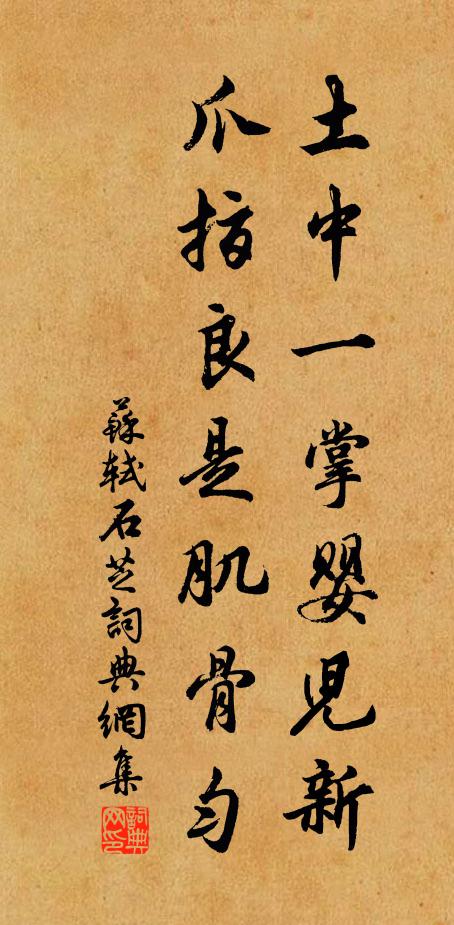 土中一掌嬰児新
爪指良是肌骨勻
蘇軾石芝詞典網集
詞典网印